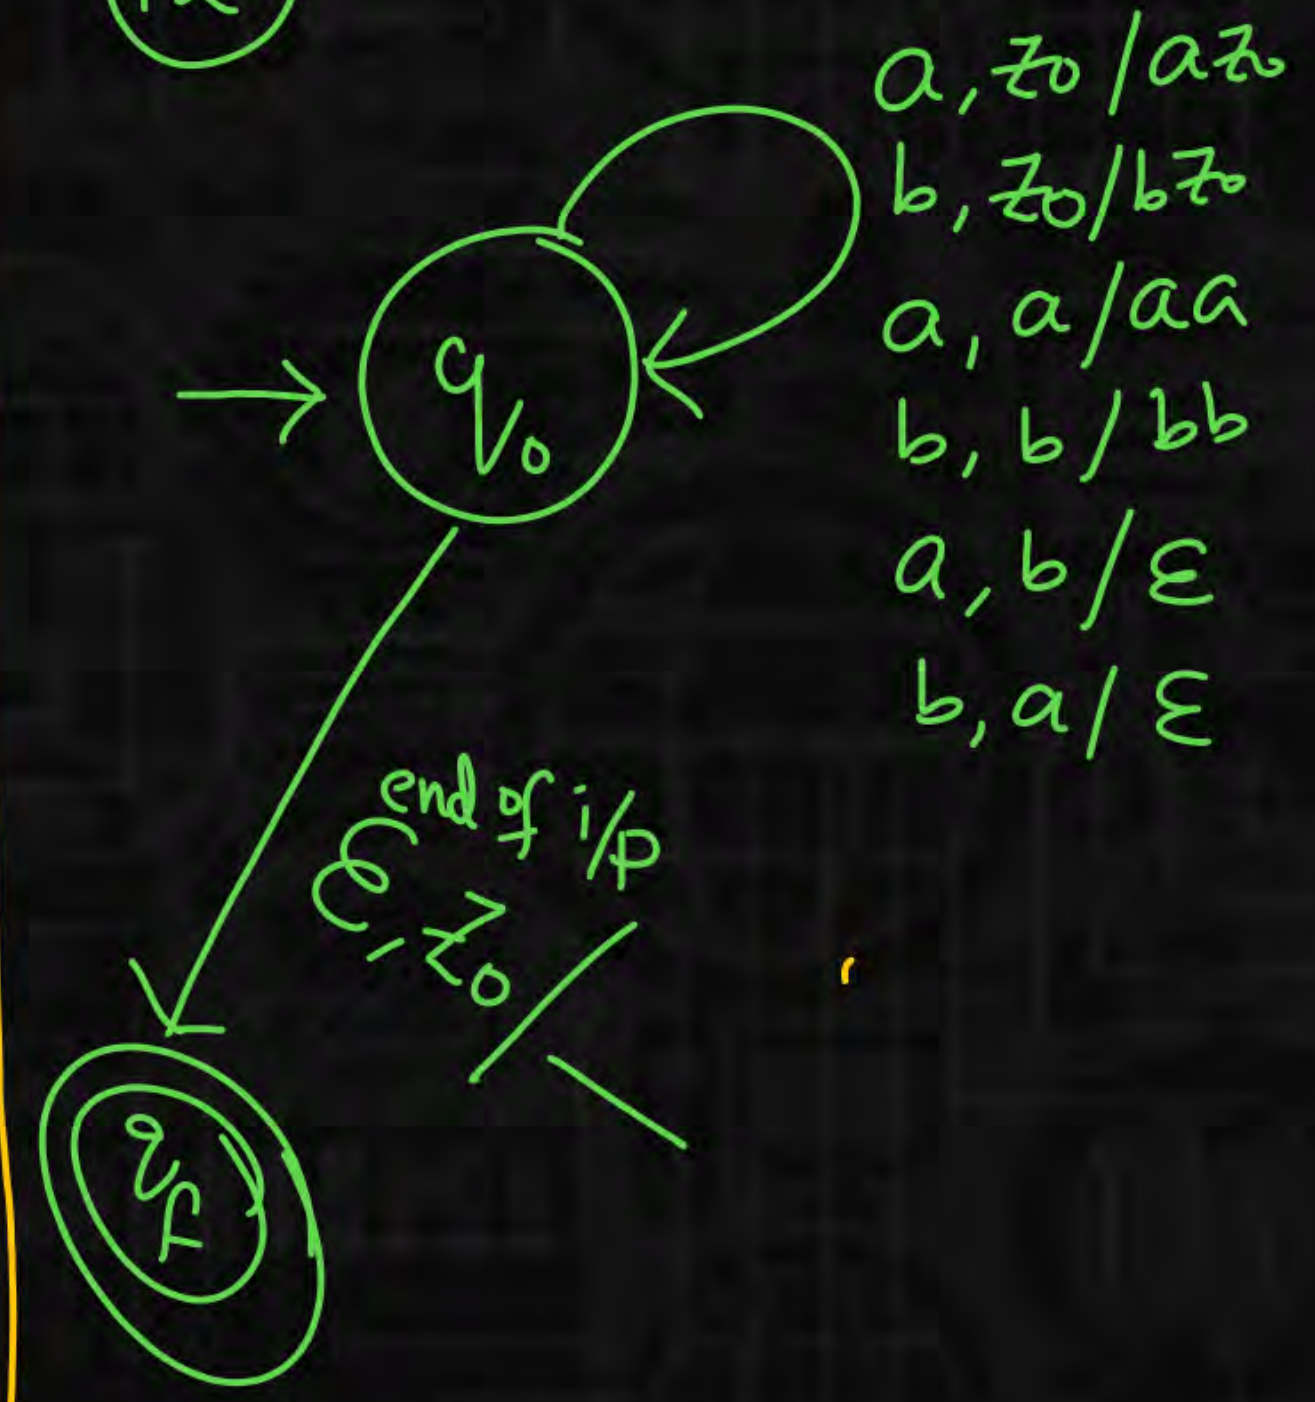 a, z₀ / a z₀
b, z₀ / b z₀
a, a / aa
q₀
b, b / bb
a, b / ε
b, a / ε
end of i/p
ε, z₀ / \
q_f